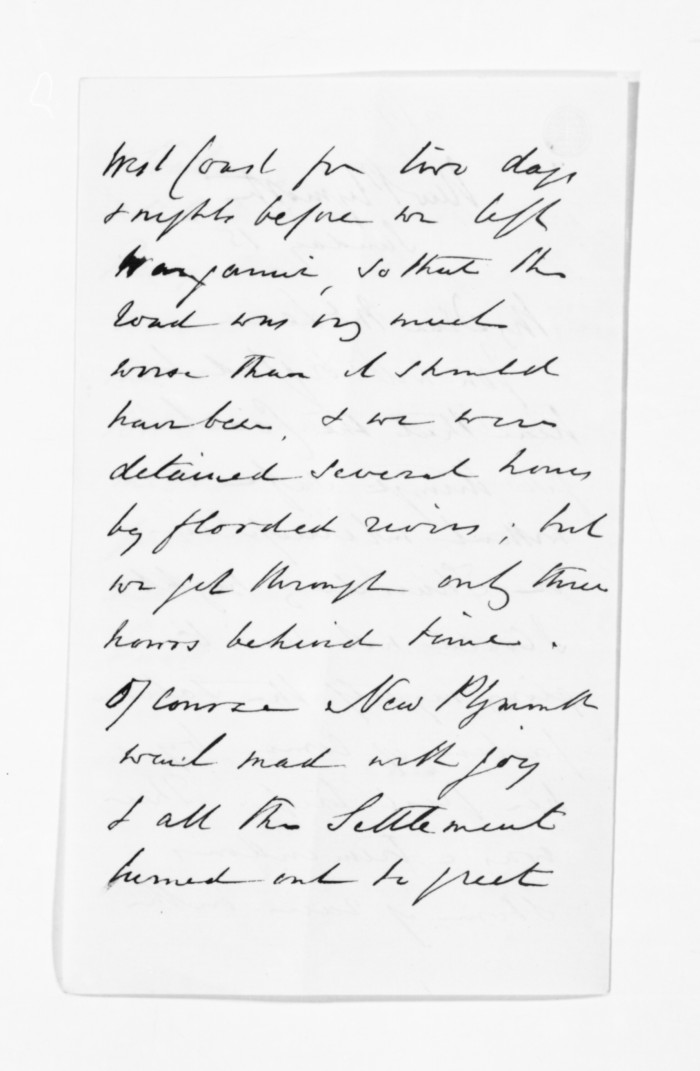 West Coast for two days
& nights before we left
Wanganui, so that the
road was very much
worse than it should
have been, & we were
detained several hours
by flooded rivers; but
we got through only three
hours behind time.
Of course New Plymouth
went mad with joy
& all the Settlement
turned out to greet